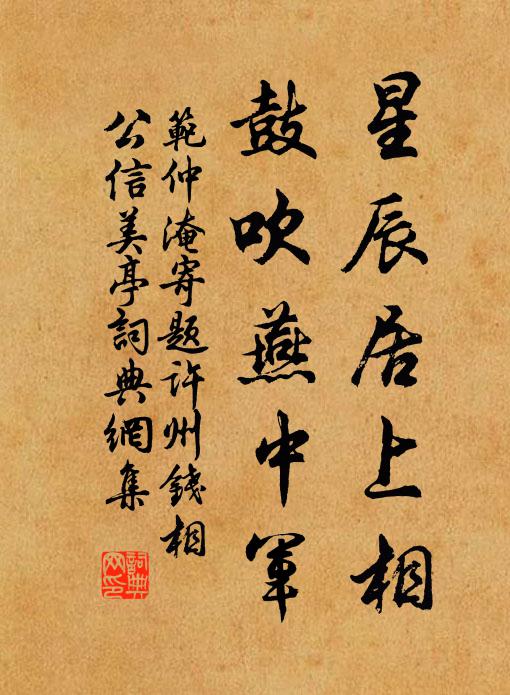 星辰居上相
鼓吹燕中軍
範仲淹寄題許州錢相
公信美亭詞典網集
詞典
网印